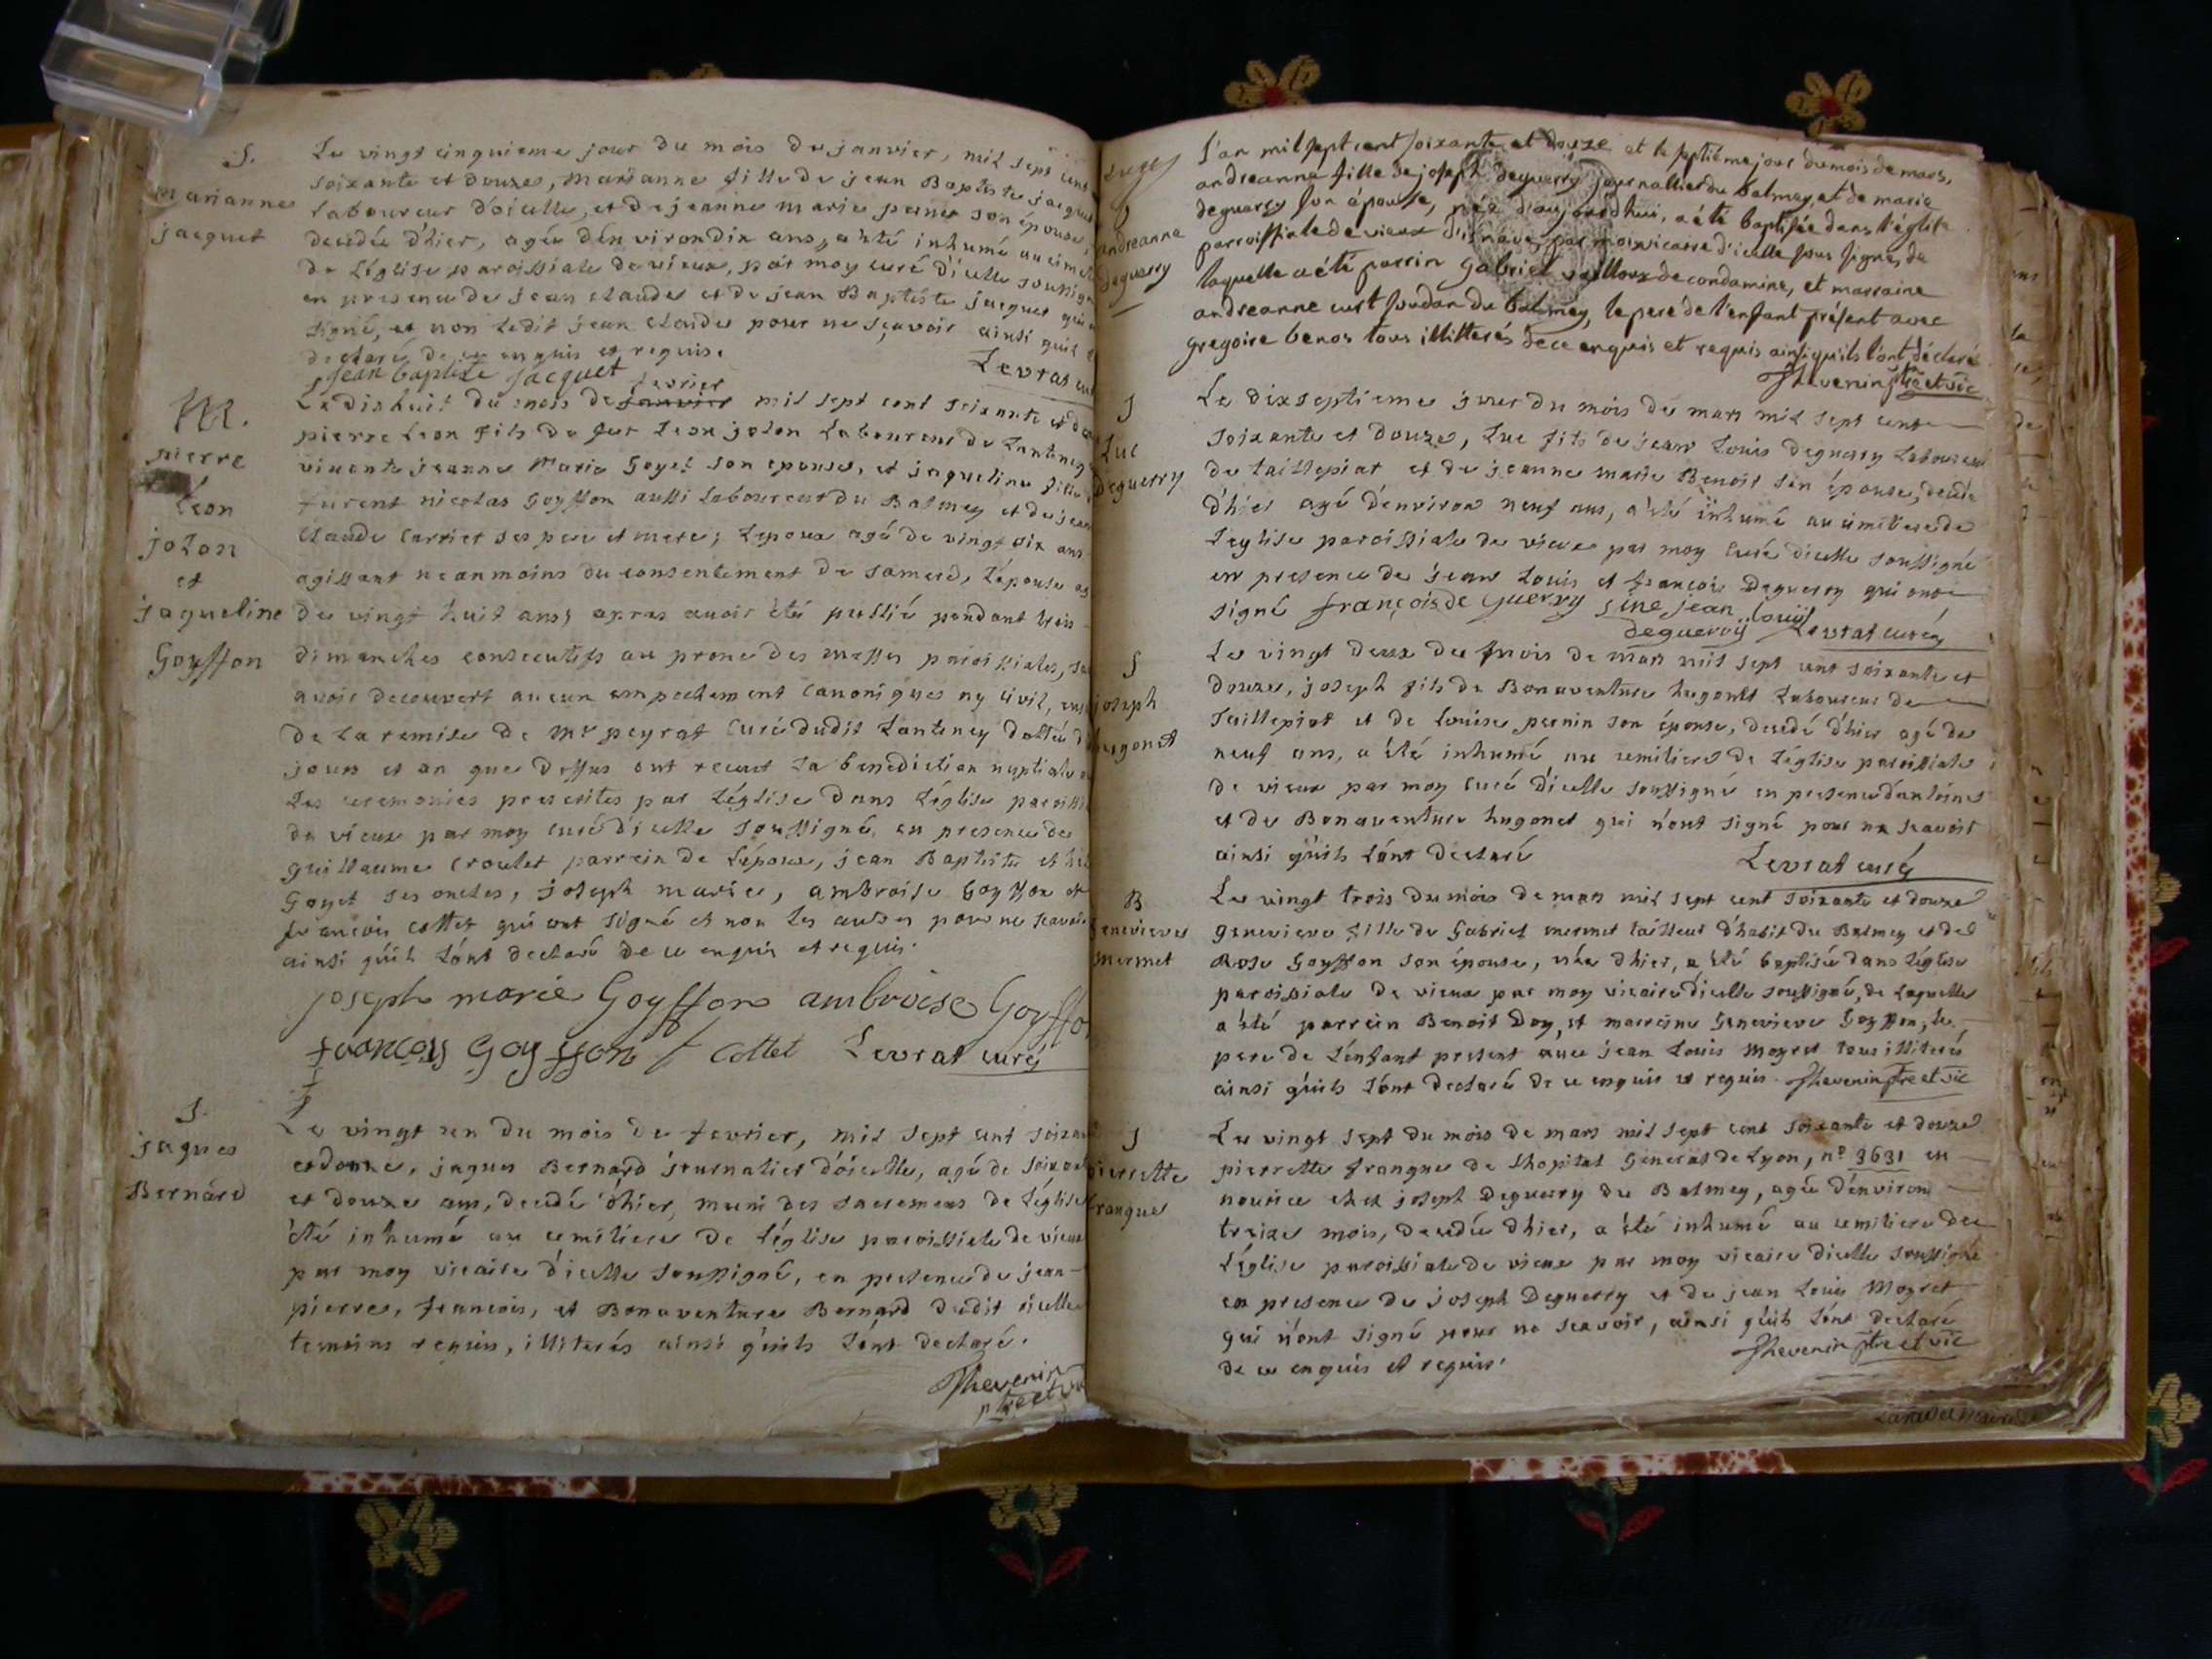 S.
marianne
jacquet
Le vingt cinquieme jour du mois de janvier, mil sept cent
soixante et douze, marianne fille de jean Baptiste jacquet
Laboureur d'oielle, et de jeanne marie perner son épouse,
decedée d'hier, agée d'environ dix ans, a été inhumé au cimet
de Léglise paroissiale de vieux, par moy curé d'icelle soussign
en presence de jean claude et de jean Baptiste jacquet qui
signé, et non Ledit jean claude pour ne sçavoir ainsi quil
declaré de ce enquis et requis.
jean baptiste jacquet
Levrat cur
M.
pierre
Léon
jolon
et
jaqueline
Goyffon
fevrier
Le dixhuit du mois de janvier mil sept cent soixante et do
pierre Leon fils de feu Leon jolon Laboureur de Lanteney
vivente jeanne Marie Goyet son epouse, et jaqueline fille
furent nicolas Goyffon aussi Laboureur du Balmey et de jean
claude Carrier ses pere et mere; Lepoux agé de vingt six ans
agissant neanmoins du consentement de samere, Lépouse ag
de vingt huit ans; apres avoir été publié pendant trois
dimanches consecutifs au prone des messes paroissiales, sa
avoir decouvert aucun empechement canonique ny civil, vu
de La remise de Mr peyrat Curé dudit Lanteney dattée d
jours et an que dessus ont recut La benediction nuptiale
Les ceremonies prescrites par Léglise dans Léglise paroissi
de vieux par moy curé d'icelle soussigné, en presence de
guillaume croulet parrein de Lépoux, jean Baptiste et
Goyet ses oncles, joseph marie, ambroise Goyffon et
francois collet qui ont signé et non Les autres pour ne scavoir
ainsi qu'ils Lónt declaré de ce enquis et requis.
joseph marie Goyffon ambroise Goyffo
françoy Goyffon f collet Levrat curé
S.
jaques
Bernard
Le vingt un du mois de fevrier, mil sept cent soixan
et douze, jaques Bernard journalier d'oicelle, agé de soixan
et douze ans, decedé d'hier, muni des sacremens de Léglise
été inhumé au cemitiere de Léglise paroissiale de vieux
par moy vicaire d'icelle soussigné, en presence de jean-
pierre, francois, et Bonaventure Bernard dudit oielle
temoins requis, illiterés ainsi qu'ils Lónt declaré.
Thevenin
ptre et v
andreanne
deguerry
L'an mil sept cent soixante et douze et le septième jour du mois de mars,
andreanne fille de joseph deguerry journallier du balmey, et de marie
deguerry son épouse, née d'aujourdhui, a été baptisée dans l'église
parroissiale de vieux d'isenave par moi vicaire d'icelle sous signé, de
laquelle a été parrin Gabriel vuilloux de condamine, et marraine
andreanne curt soudan du balmey, le pere de l'enfant présent avec
gregoire benos tous illitterés de ce enquis et requis ainsi qu'ils l'ont déclaré
Thevenin ptre et vic
S
Luc
Deguerry
Le dixseptieme jour du mois de mars mil sept cent
soixante et douze, Luc fils de jean Louis deguerry Laboureur
de taillepiat et de jeanne marie Benoit son épouse, decedé
d'hier agé d'environ neuf ans, a été inhumé au cimitiere de
Leglise paroissiale de vieux par moy Curé dicelle soussigné
en presence de jean Louis et francois Deguerry qui ont
signé françois de Guerry jean Louis
deguerry Levrat curé
S
joseph
hugonet
Le vingt deux du mois de mars mil sept cent soixante et
douze, joseph fils de Bonaventure hugonet Laboureur de
Taillepiat et de Louise pernin son épouse, decedé d'hier agé de
neuf ans, a été inhumé au cemitiere de Léglise paroissiale
de vieux par moy curé d'icelle soussigné en presence d'antoine
et de Bonaventure hugonet qui n'ont signé pour ne scavoir
ainsi qu'ils Lónt declaré
Levrat curé
B
Genevieve
mermet
Le vingt trois du mois de mars mil sept cent soixante et douze
genevieve fille de Gabriel mermet tailleur d'habit du Balmey et de
Rose Goyffon son épouse, née d'hier, a été baptisée dans Léglise
paroissiale de vieux par moy vicaire d'icelle soussigné, de Laquelle
a été parrein Benoit Doy, et marreine Genevieve Goyffon, Le
pere de Lénfant present avec jean Louis Moyret tous illiterés
ainsi qu'ils Lónt declaré de ce enquis et requis. Thevenin ptre et vic
S
pierrette
frangue
Le vingt sept du mois de mars mil sept cent soixante et douze
pierrette frangue de Lhopital General de Lyon, n.° 3631 en
nourice chez joseph Deguerry du Balmey, agée d'environ
treize mois, decedée d'hier, a été inhumé au cemitiere de
Léglise paroissiale de vieux par moy vicaire d'icelle soussigné
en presence de joseph Deguerry et de jean Louis Moyret
qui n'ont signé pour ne scavoir, ainsi qu'ils Lónt declaré
de ce enquis et requis.
Thevenin ptre et vic